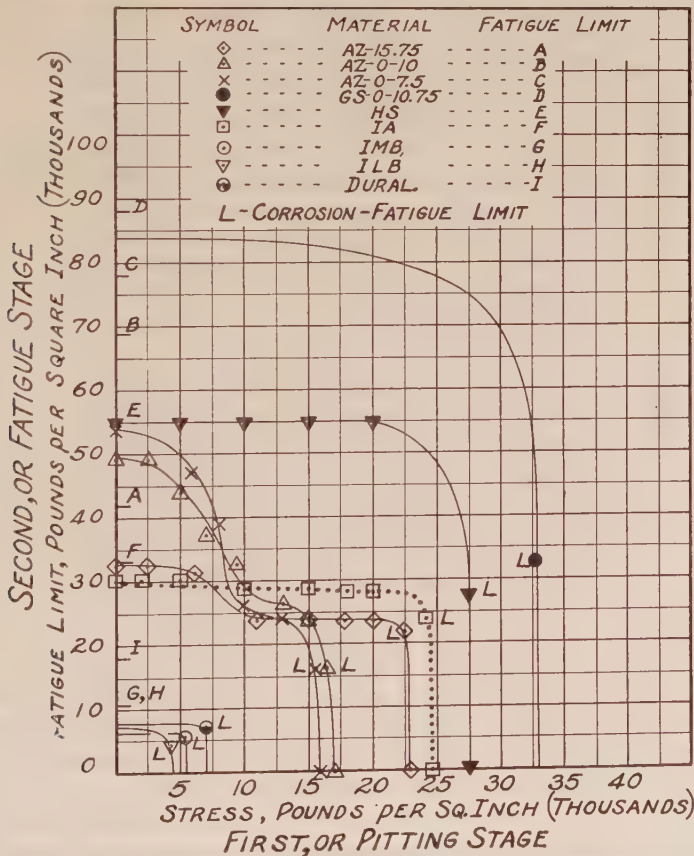 SYMBOL MATERIAL FATIGUE LIMIT
AZ-15.75 A
AZ-0-10 B
AZ-0-7.5 C
GS-0-10.75 D
HS E
IA F
IMB, G
ILB H
DURAL. I
L-CORROSION-FATIGUE LIMIT
SECOND, OR FATIGUE STAGE
FATIGUE LIMIT, POUNDS PER SQUARE INCH (THOUSANDS)
100
90
80
70
60
50
40
30
20
10
0
D
C
B
E
A
F
I
G, H
L
L
L
L
L
L
L
L
L
5 10 15 20 25 30 35 40
STRESS, POUNDS PER SQ. INCH (THOUSANDS)
FIRST, OR PITTING STAGE